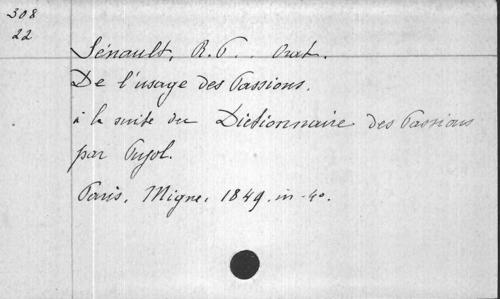 308
22
Sénault, R. P. Orat.
De l'usage des Passions.
à la suite du Dictionnaire des Passions
par Pujol.
Paris, Migne, 1849. in-4o.